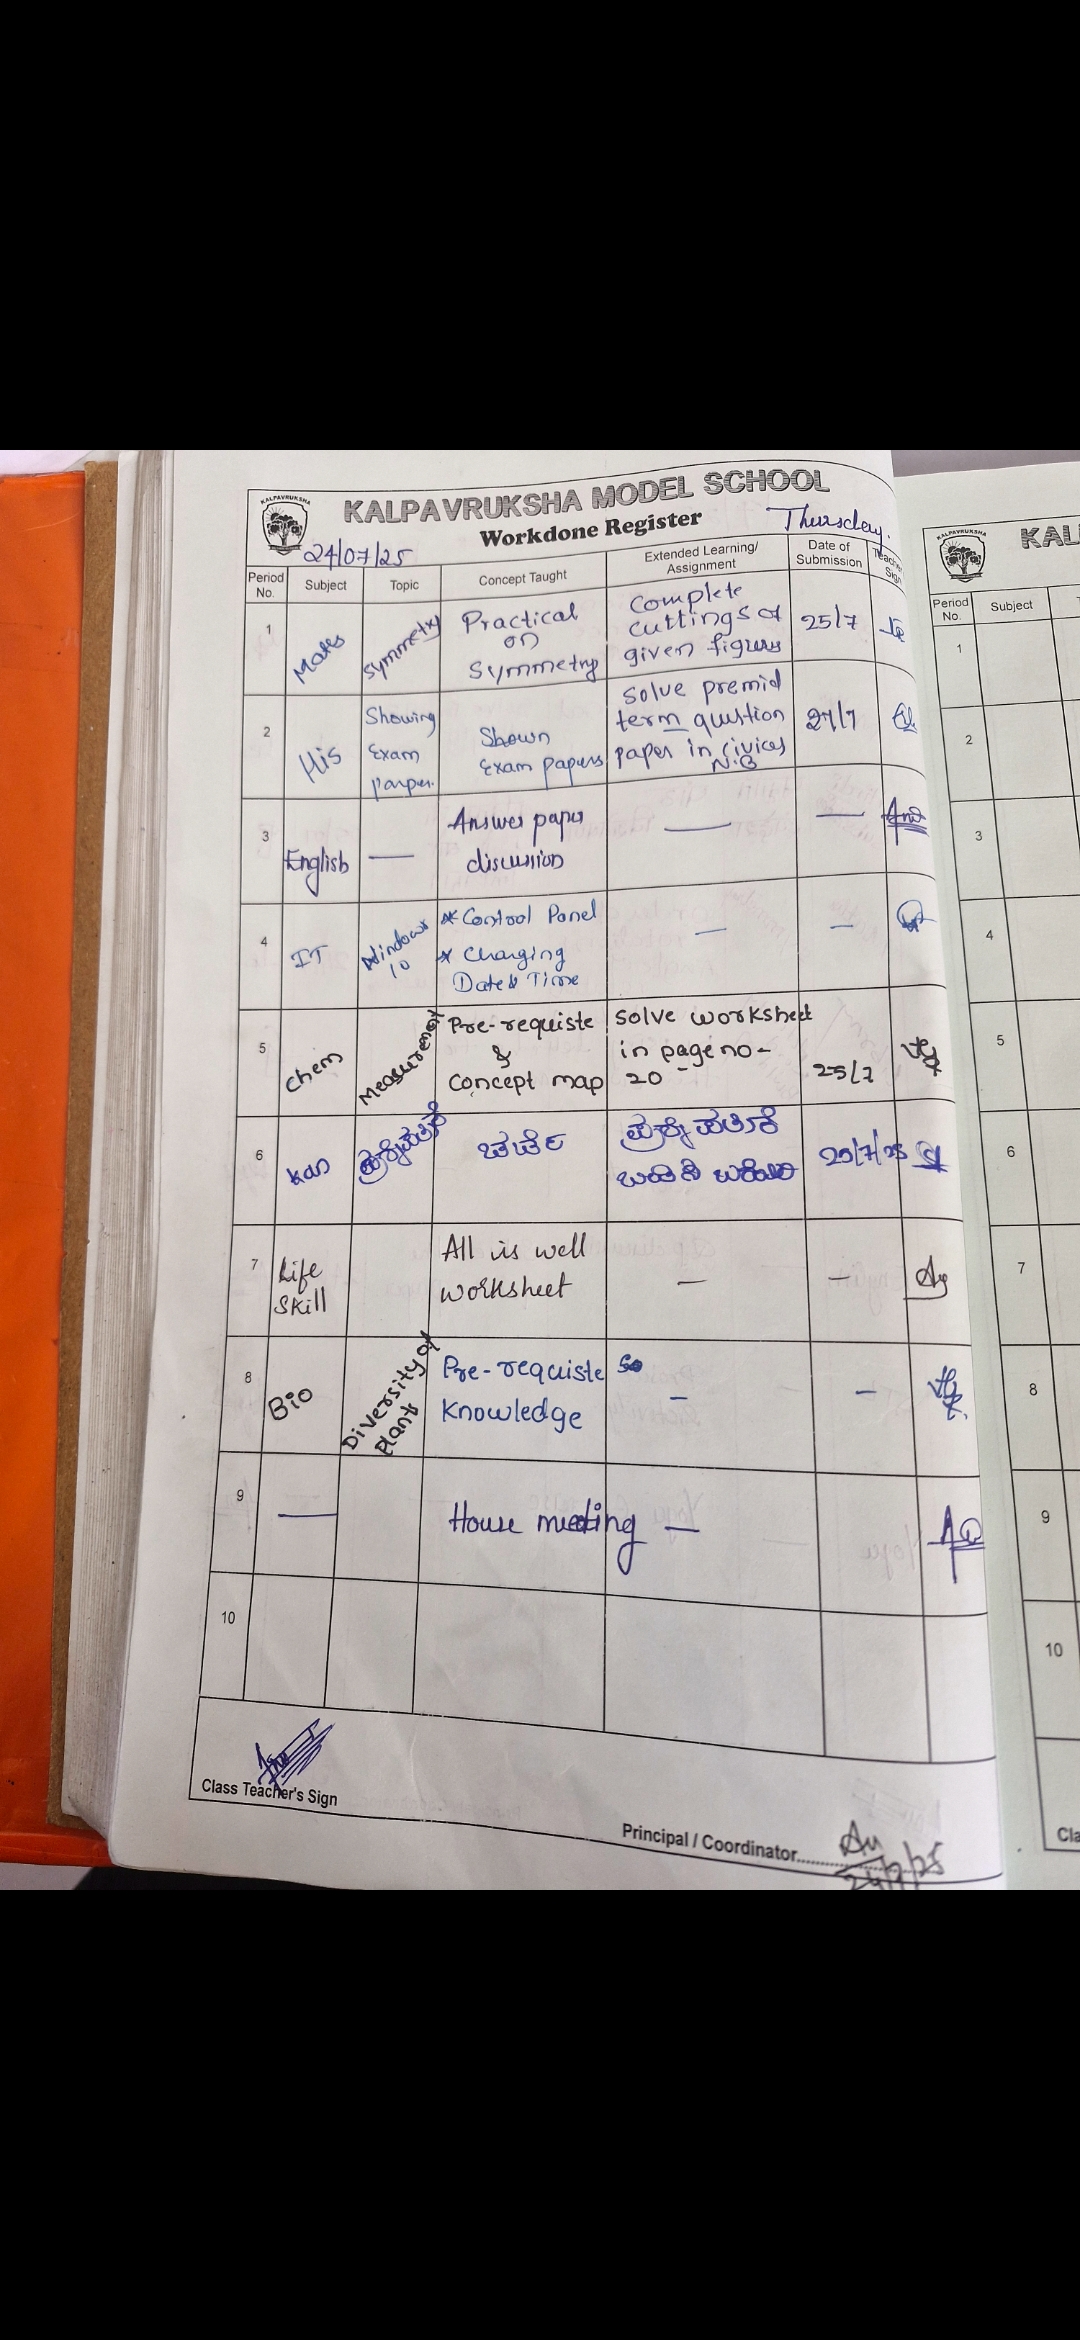 KALPAVRUKSHA
KALPAVRUKSHA MODEL SCHOOL
Workdone Register
Thursday.
24/07/25
Period No. Subject Topic Concept Taught Extended Learning/ Assignment Date of Submission Teacher Sign
1 Maths Symmetry Practical on Symmetry Complete cuttings of given figures 25/7
2 His Showing Exam paper. Shown Exam papers Solve premid term question paper in civics N.B 27/7
3 English — Answer paper discussion — —
4 IT Windows 10 * Control Panel * Changing Date & Time — —
5 Chem Measurement Pre-requiste & Concept map Solve worksheet in page no- 20 25/7
6 Kan ಪ್ರಶ್ನೆಪತ್ರಿಕೆ ಚರ್ಚೆ ಪ್ರಶ್ನೆ ಪತ್ರಿಕೆ 25/7/25
7 Life Skill All is well worksheet — —
8 Bio Diversity of Plants Pre-requiste Knowledge — —
9 — House meeting —
10
Class Teacher's Sign
Principal / Coordinator..............
24/7/25
KALPAVRUKSHA
KAL
Period No. Subject
1
2
3
4
5
6
7
8
9
10
Cla